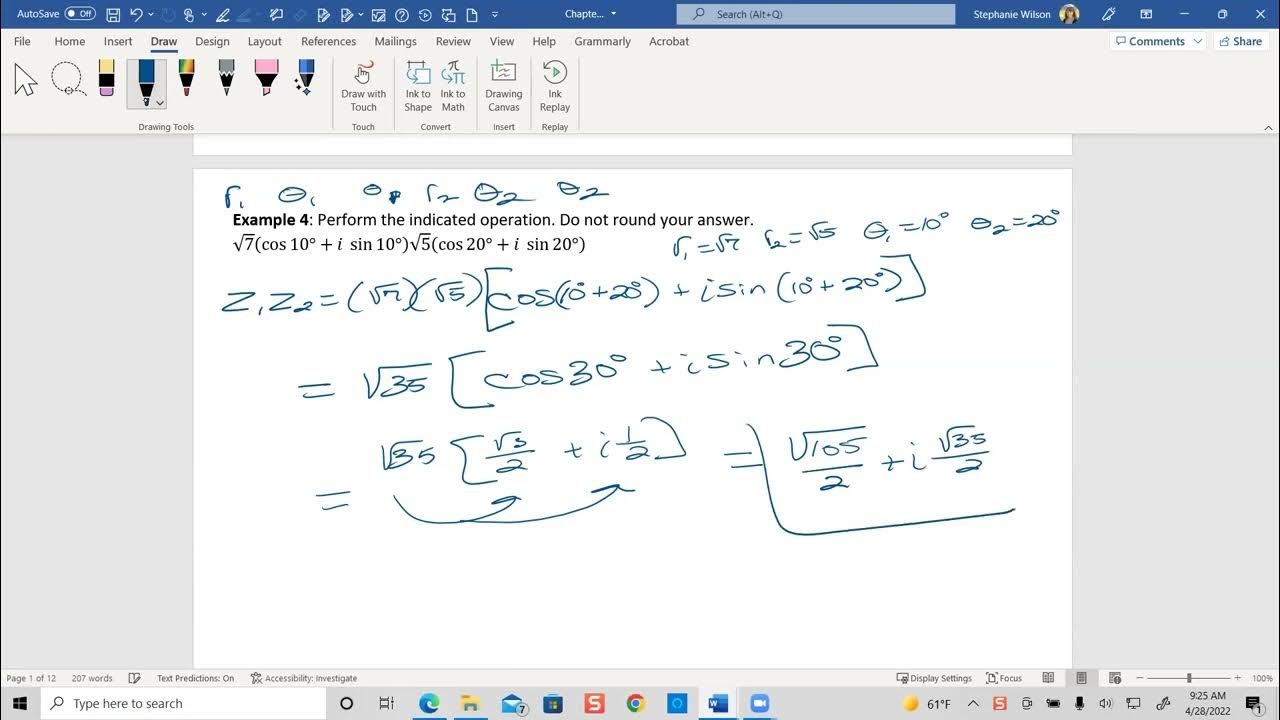 AutoSave Off Chapte... Search (Alt+Q) Stephanie Wilson
File Home Insert Draw Design Layout References Mailings Review View Help Grammarly Acrobat Comments Share
Draw with Touch Ink to Shape Ink to Math Drawing Canvas Ink Replay
Drawing Tools Touch Convert Insert Replay
r₁ θ₁ θ₁ r₂ θ₂ θ₂
Example 4: Perform the indicated operation. Do not round your answer.
√7(cos 10° + i sin 10°)√5(cos 20° + i sin 20°)
r₁ = √7 r₂ = √5 θ₁ = 10° θ₂ = 20°
Z₁Z₂ = (√7)(√5)[cos(10° + 20°) + i sin(10° + 20°)]
= √35 [cos30° + i sin30°]
= √35 [√3/2 + i 1/2] = √105/2 + i √35/2
Page 1 of 12 207 words Text Predictions: On Accessibility: Investigate Display Settings Focus 100%
Type here to search 7 61°F 9:25 AM
4/28/2022 1